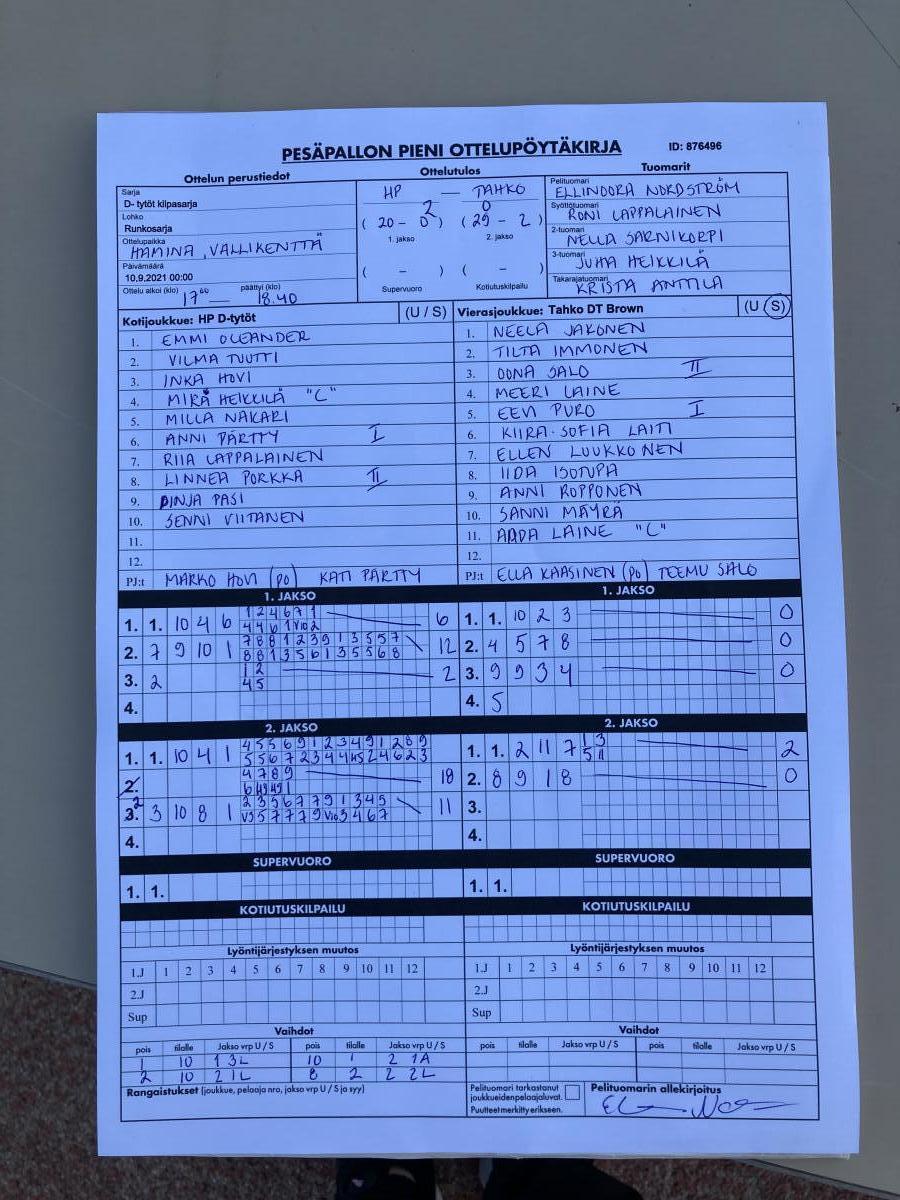 PESÄPALLON PIENI OTTELUPÖYTÄKIRJA ID: 876496
Ottelun perustiedot Ottelutulos Tuomarit
Sarja
D- tytöt kilpasarja
Lohko
Runkosarja
Ottelupaikka
HAMINA, VALLIKENTTÄ
Päivämäärä
10.9.2021 00:00
Ottelu alkoi (klo) 17⁰⁰ — päättyi (klo) 18.40
HP — TAHKO
2 0
( 20 - 0 ) ( 29 - 2 )
1. jakso 2. jakso
( - ) ( - )
Supervuoro Kotiutuskilpailu
Pelituomari
ELLINOORA NORDSTRÖM
Syöttötuomari
RONI LAPPALAINEN
2-tuomari
NELLA SARNIKORPI
3-tuomari
JUHA HEIKKILÄ
Takarajatuomari
KRISTA ANTTILA
Kotijoukkue: HP D-tytöt (U / S)
1. EMMI OLEANDER
2. VILMA TUUTTI
3. INKA HOVI
4. MIRA HEIKKILÄ "C"
5. MILLA NAKARI
6. ANNI PÄRTTY I
7. RIIA LAPPALAINEN
8. LINNEA PORKKA II
9. PINJA PASI
10. SENNI VIITANEN
11.
12.
PJ:t MARKO HOVI (PO) KATI PÄRTTY
Vierasjoukkue: Tahko DT Brown (U / S)
1. NEELA JAKONEN
2. TILTA IMMONEN
3. OONA SALO II
4. MEERI LAINE
5. EEVI PURO I
6. KIIRA-SOFIA LAITI
7. ELLEN LUUKKONEN
8. IIDA ISOTUPA
9. ANNI ROPPONEN
10. SANNI MÄYRÄ
11. AADA LAINE "C"
12.
PJ:t ELLA KAASINEN (PO) TEEMU SALO
1. JAKSO
1. 1. 10 4 6 1 2 4 6 7 1 6
4 4 6 1 V10 2
2. 7 9 10 1 7 8 8 1 2 3 9 1 3 5 5 7 12
8 8 1 3 5 6 1 3 5 5 6 8
3. 2 1 2 2
4 5
4.
1. JAKSO
1. 1. 10 2 3 0
2. 4 5 7 8 0
3. 9 9 3 4 0
4. 5
2. JAKSO
1. 1. 10 4 1 4 5 5 6 9 1 2 3 4 9 1 2 8 9
2. 4 7 8 9 18
3. 2 3 10 8 1 2 3 5 6 7 7 9 1 3 4 5 11
V3 5 7 7 7 9 V10 3 4 6 7
4.
2. JAKSO
1. 1. 2 11 7 1 3 2
5 11
2. 8 9 1 8 0
3.
4.
SUPERVUORO
1. 1.
SUPERVUORO
1. 1.
KOTIUTUSKILPAILU
KOTIUTUSKILPAILU
Lyöntijärjestyksen muutos
1.J 1 2 3 4 5 6 7 8 9 10 11 12
2.J
Sup
Lyöntijärjestyksen muutos
1.J 1 2 3 4 5 6 7 8 9 10 11 12
2.J
Sup
Vaihdot
pois tilalle Jakso vrp U / S pois tilalle Jakso vrp U / S
1 10 1 3L 10 1 2 1A
2 10 2 1L 8 2 2 2L
Vaihdot
pois tilalle Jakso vrp U / S pois tilalle Jakso vrp U / S
Rangaistukset (joukkue, pelaaja nro, jakso vrp U / S ja syy)
Pelituomari tarkastanut
joukkueiden pelaajaluvat.
Puutteet merkitty erikseen.
Pelituomarin allekirjoitus